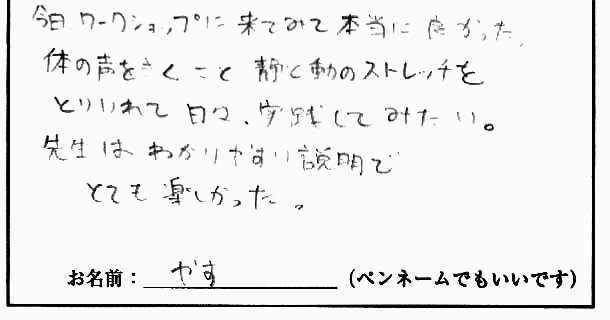 今日ワークショップに来てみて本当に良かった。
体の声をきくこと 静と動のストレッチを
とりいれて 日々、実践してみたい。
先生はわかりやすい説明で
とても楽しかった。
お名前：やす（ペンネームでもいいです）